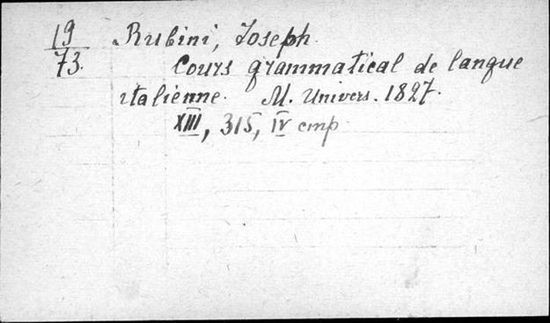 19 Rubini, Joseph.
73. Cours grammatical de langue
italienne. M. Univers. 1827.
XIII, 315, IV cmp